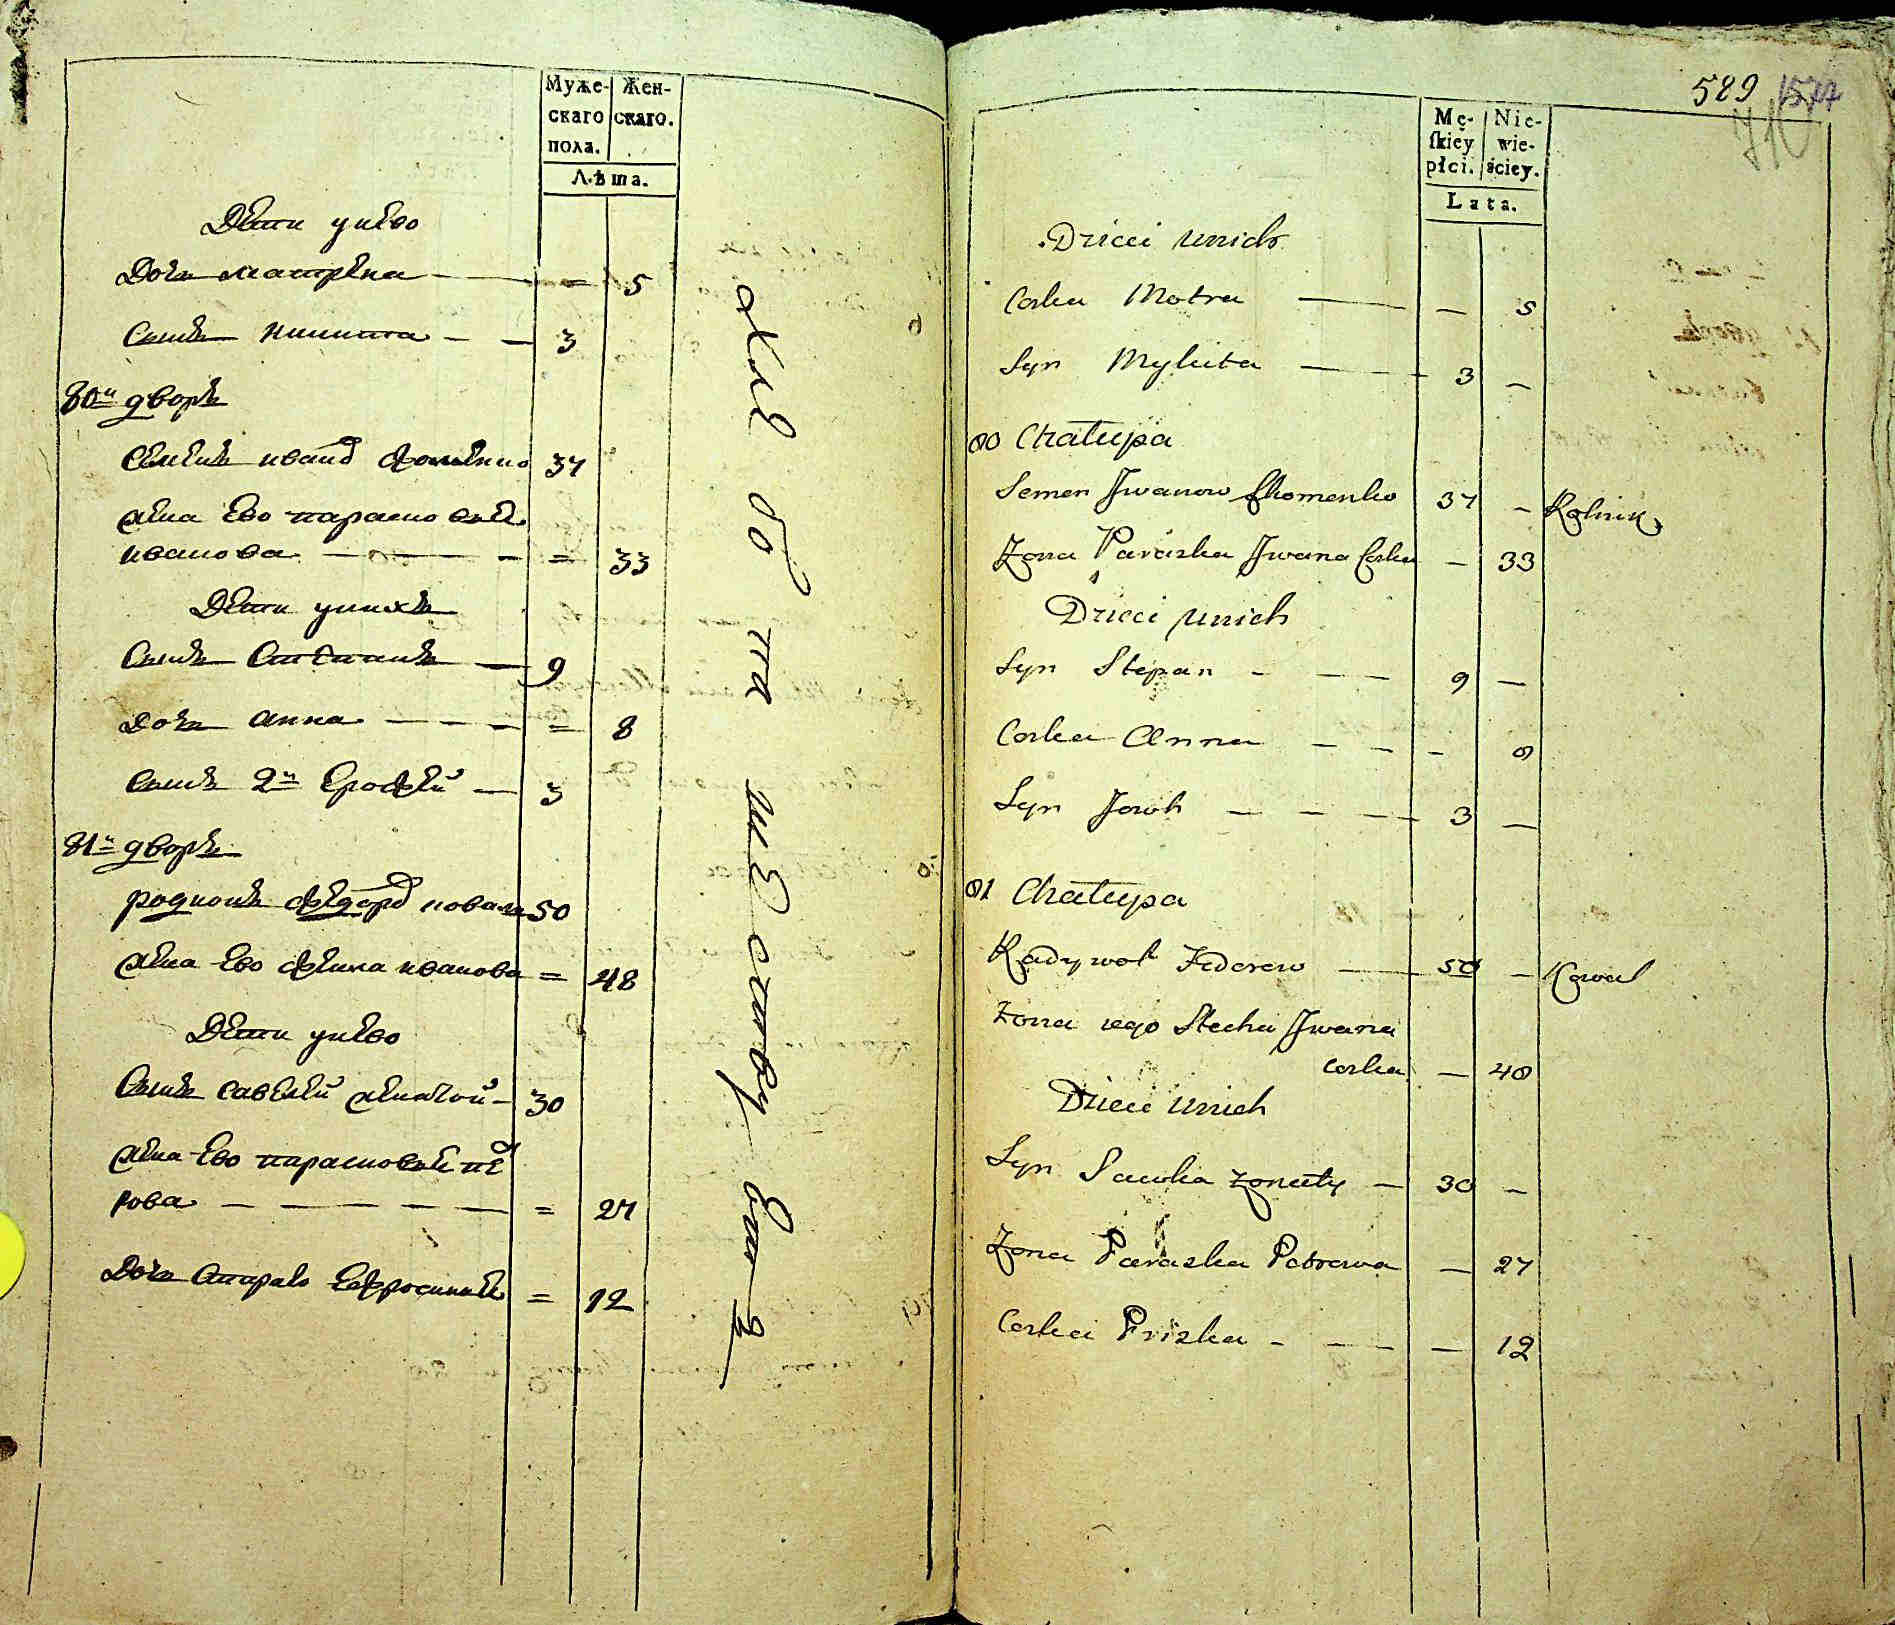 Муже- Жен-
скаго скаго.
пола.
Лѣта.
Дѣти унево
Дочь Матрена — = 5
Сынъ Никита — — 3
80й дворъ
Семенъ Иванов Фоменко 37
Жена Ево Парасковья
Иванова — = 33
Дѣти унихъ
Сынъ Степанъ — 9
Дочь Анна — — — = 8
Сынъ 2й Ерофей — 3
81й дворъ
Родионъ Федоров Коваль 50
Жена Ево Фекла Иванова = 48
Дѣти унево
Сынъ Савелей женатой — 30
Жена Ево Парасковья Пет
рова — — — — = 27
Дочь Ефросинья = 12
589 1577
Mę- Nie-
skiey wie-
płci. ściey.
Lata.
Dzieci unich
Corka Motra — — 5
Syn Mykita — 3 —
80 Chałupa
Semen Jwanow Fhomenko 37 — Rolnik
Żona Paraska Jwana Corka — 33
Dzieci unich
Syn Stepan - — — 9 —
Corka Anna — — - 8
Syn Jowh — — — 3 —
81 Chałupa
Radywoł Fedorow — 50 — Kowal
Żona iego Stecha Jwana
corka — 48
Dzieci unich
Syn Sawka żonaty — 30 —
Żona Paraska Petrowa — 27
Corka Priska - — — — 12